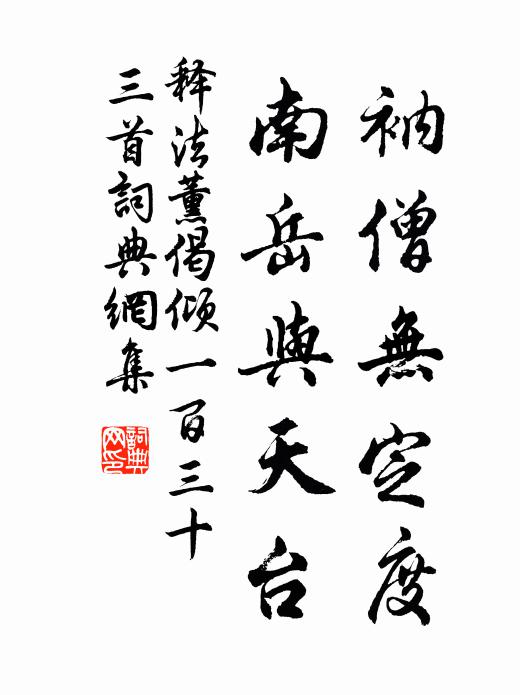 衲僧無定度
南岳與天台
释法薰偈倾一百三十
三首詞典網集
詞典
网印